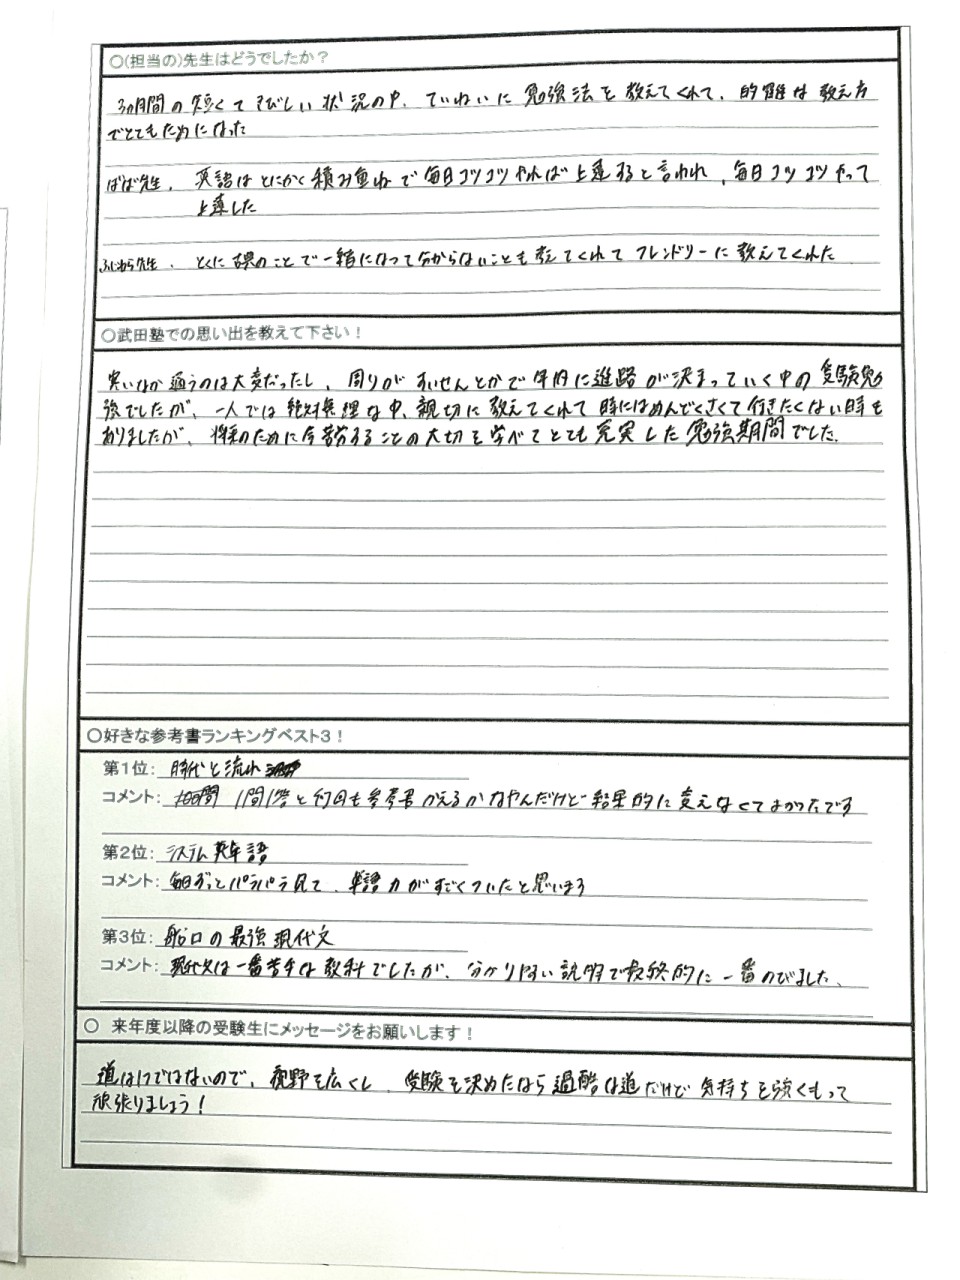 ○(担当の)先生はどうでしたか？
3ヵ月間の短くてきびしい状況の中、ていねいに勉強法を教えてくれて、的確な教え方
でとてもためになった
ばば先生、英語はとにかく積み重ねで毎日コツコツやれば上達すると言われ、毎日コツコツやって
上達した
ふじわら先生、とくに古典のことで一緒になって分からないことも教えてくれてフレンドリーに教えてくれた
○武田塾での思い出を教えて下さい！
寒いなか通うのは大変だったし、周りがすいせんとかで年内に進路が決まっていく中の受験勉
強でしたが、一人では絶対無理な中、親切に教えてくれて時にはめんどくさくて行きたくない時も
ありましたが、将来のために今努力することの大切を学べてとても充実した勉強期間でした.
○好きな参考書ランキングベスト3！
第1位: 時代と流れ
コメント: 1問1答と何回も参考書かえるかなやんだけど結果的に変えなくてよかったです
第2位: システム英単語
コメント: 毎日ずっとパラパラ見て、単語力がすごくついたと思います
第3位: 船口の最強現代文
コメント: 現代文は一番苦手な教科でしたが、分かりやすい説明で最終的に一番のびました、
○ 来年度以降の受験生にメッセージをお願いします！
道は1つではないので、視野を広くし、受験を決めたなら過酷な道だけど気持ちを強くもって
頑張りましょう！